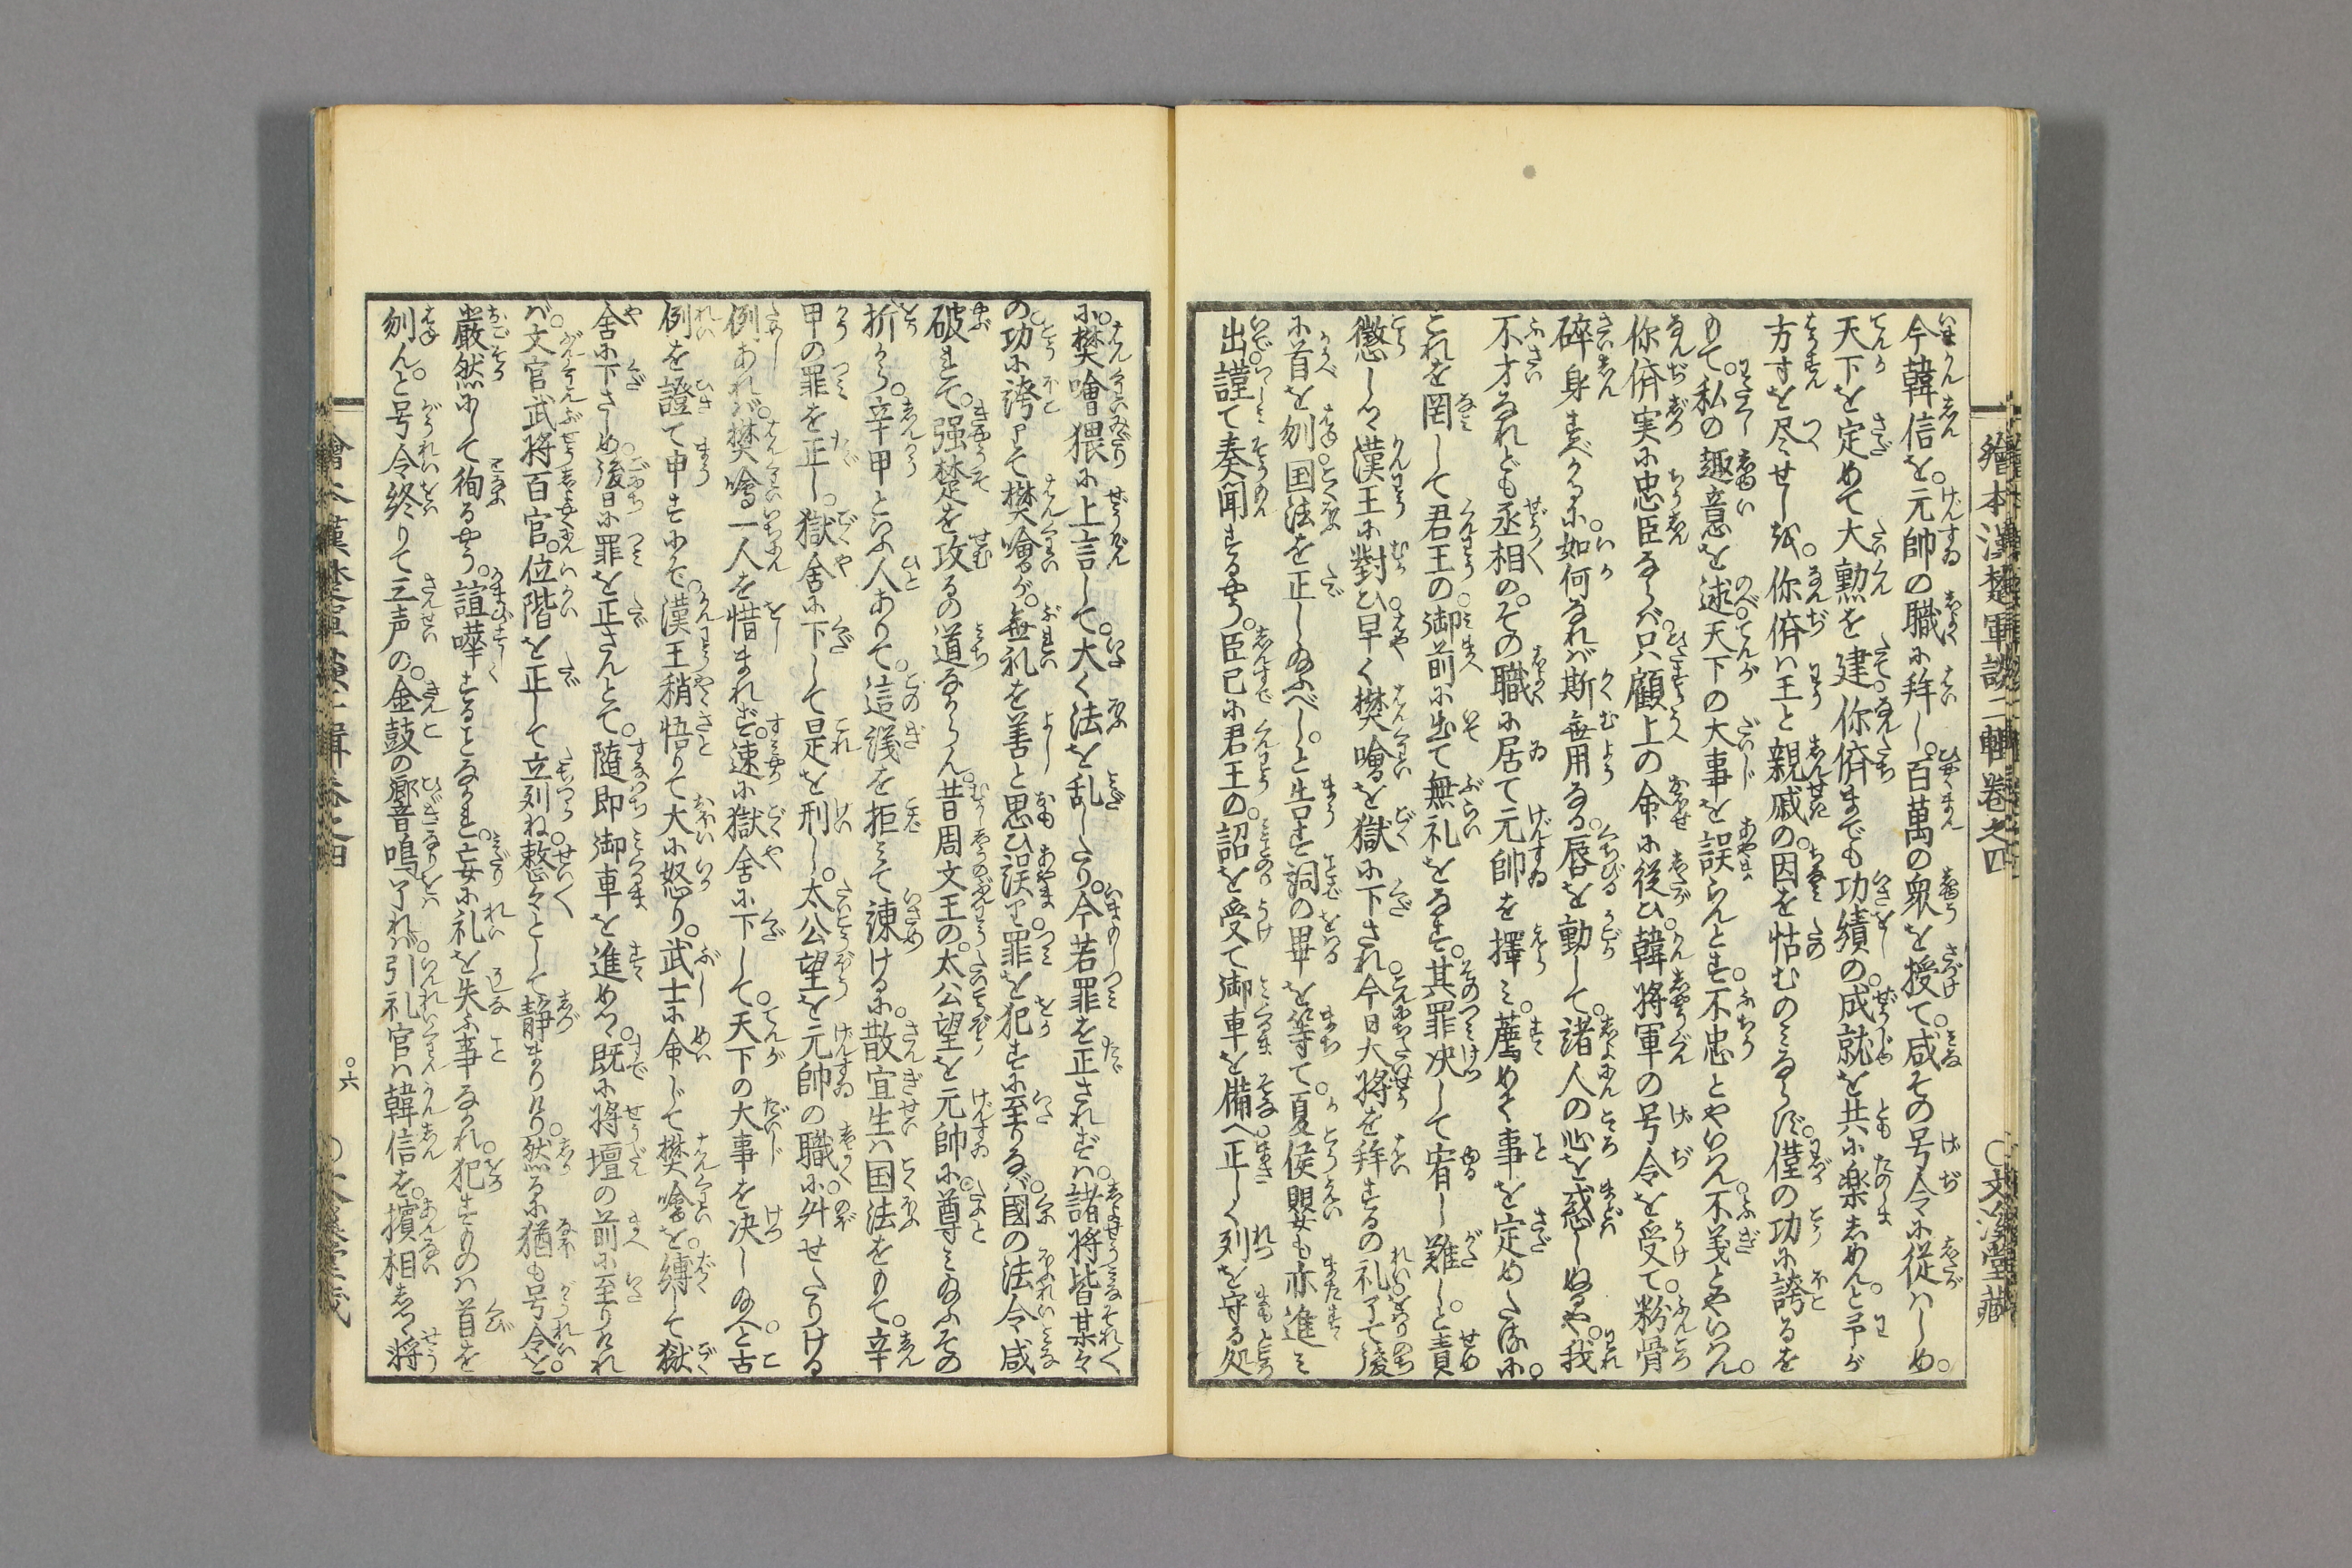 繪本漢楚軍談二輯巻之四
〇文溪堂藏
今韓信を。元帥の職に拝し。百萬の衆を授て。咸その号令に従はしめ。
天下を定めて大勲を建。你儕までも功績の。成就を共に楽しめんと。予が
方寸を尽せしを。你儕ハ王と親戚の。因を怙むのミならず。僅の功に誇るを
もて。私の趣意を述。天下の大事を誤らんとす。不忠とやいはん。不義とやいはん。
你儕実に忠臣ならバ。只顧上の命に後ひ。韓将軍の号令を受て。粉骨
碎身すべかるに。如何なれバ斯無用なる。唇を動して。諸人の心を惑しぬるや。我
不才なれども丞相の。その職に居て元帥を擇ミ。薦めて事を定めたるに。
これを罔して君王の。御前に出て無礼をなす。其罪决して宥し難しと。責
懲しつゝ漢王に對ひ。早く樊噲を獄に下され。今日大将を拝するの礼了て後
に。首を刎。国法を正し給ふべし。と告す詞の畢を等て。夏侯嬰も亦進ミ
出。謹て奏聞するやう。臣已に君王の。詔を受て御車を備へ。正しく列を守る処
に。樊噲猥に上言して。大く法を乱したり。今若罪を正されずハ。諸将皆某々
の。功に誇りて樊噲が。無礼を善と思ひ誤り。罪を犯すに至りなバ。國の法令咸
破れて。强楚を攻るの道なからん。昔周文王の。太公望を元帥に。尊ミ給ふその
折から。辛甲といふ人ありて。這議を拒ミて諌けるに。散宜生ハ国法をもて。辛
甲の罪を正し。獄舎に下して是を刑し。太公望を元帥の職に。舛せたりける
例あれバ。樊噲一人を惜まれず。速に獄舎に下して。天下の大事を决し給へと。古
例を證て申すにぞ。漢王稍悟りて大に怒り。武士に命じて樊噲を。縛して獄
舎に下さしめ。後日に罪を正さんとて。随即御車を進めつゝ。既に将壇の前に至りけれ
バ。文官武将百官。位階を正して立列ね。整々として静まりけり。然るに猶も号令を。
嚴然にして徇るやう。諠嘩することなかれ。妄に礼を失ふ事なかれ。犯すものハ首を
刎んと。号令終りて三声の。金鼓の響音鳴了れバ。引礼官ハ韓信を。擯相しつゝ将
〇六